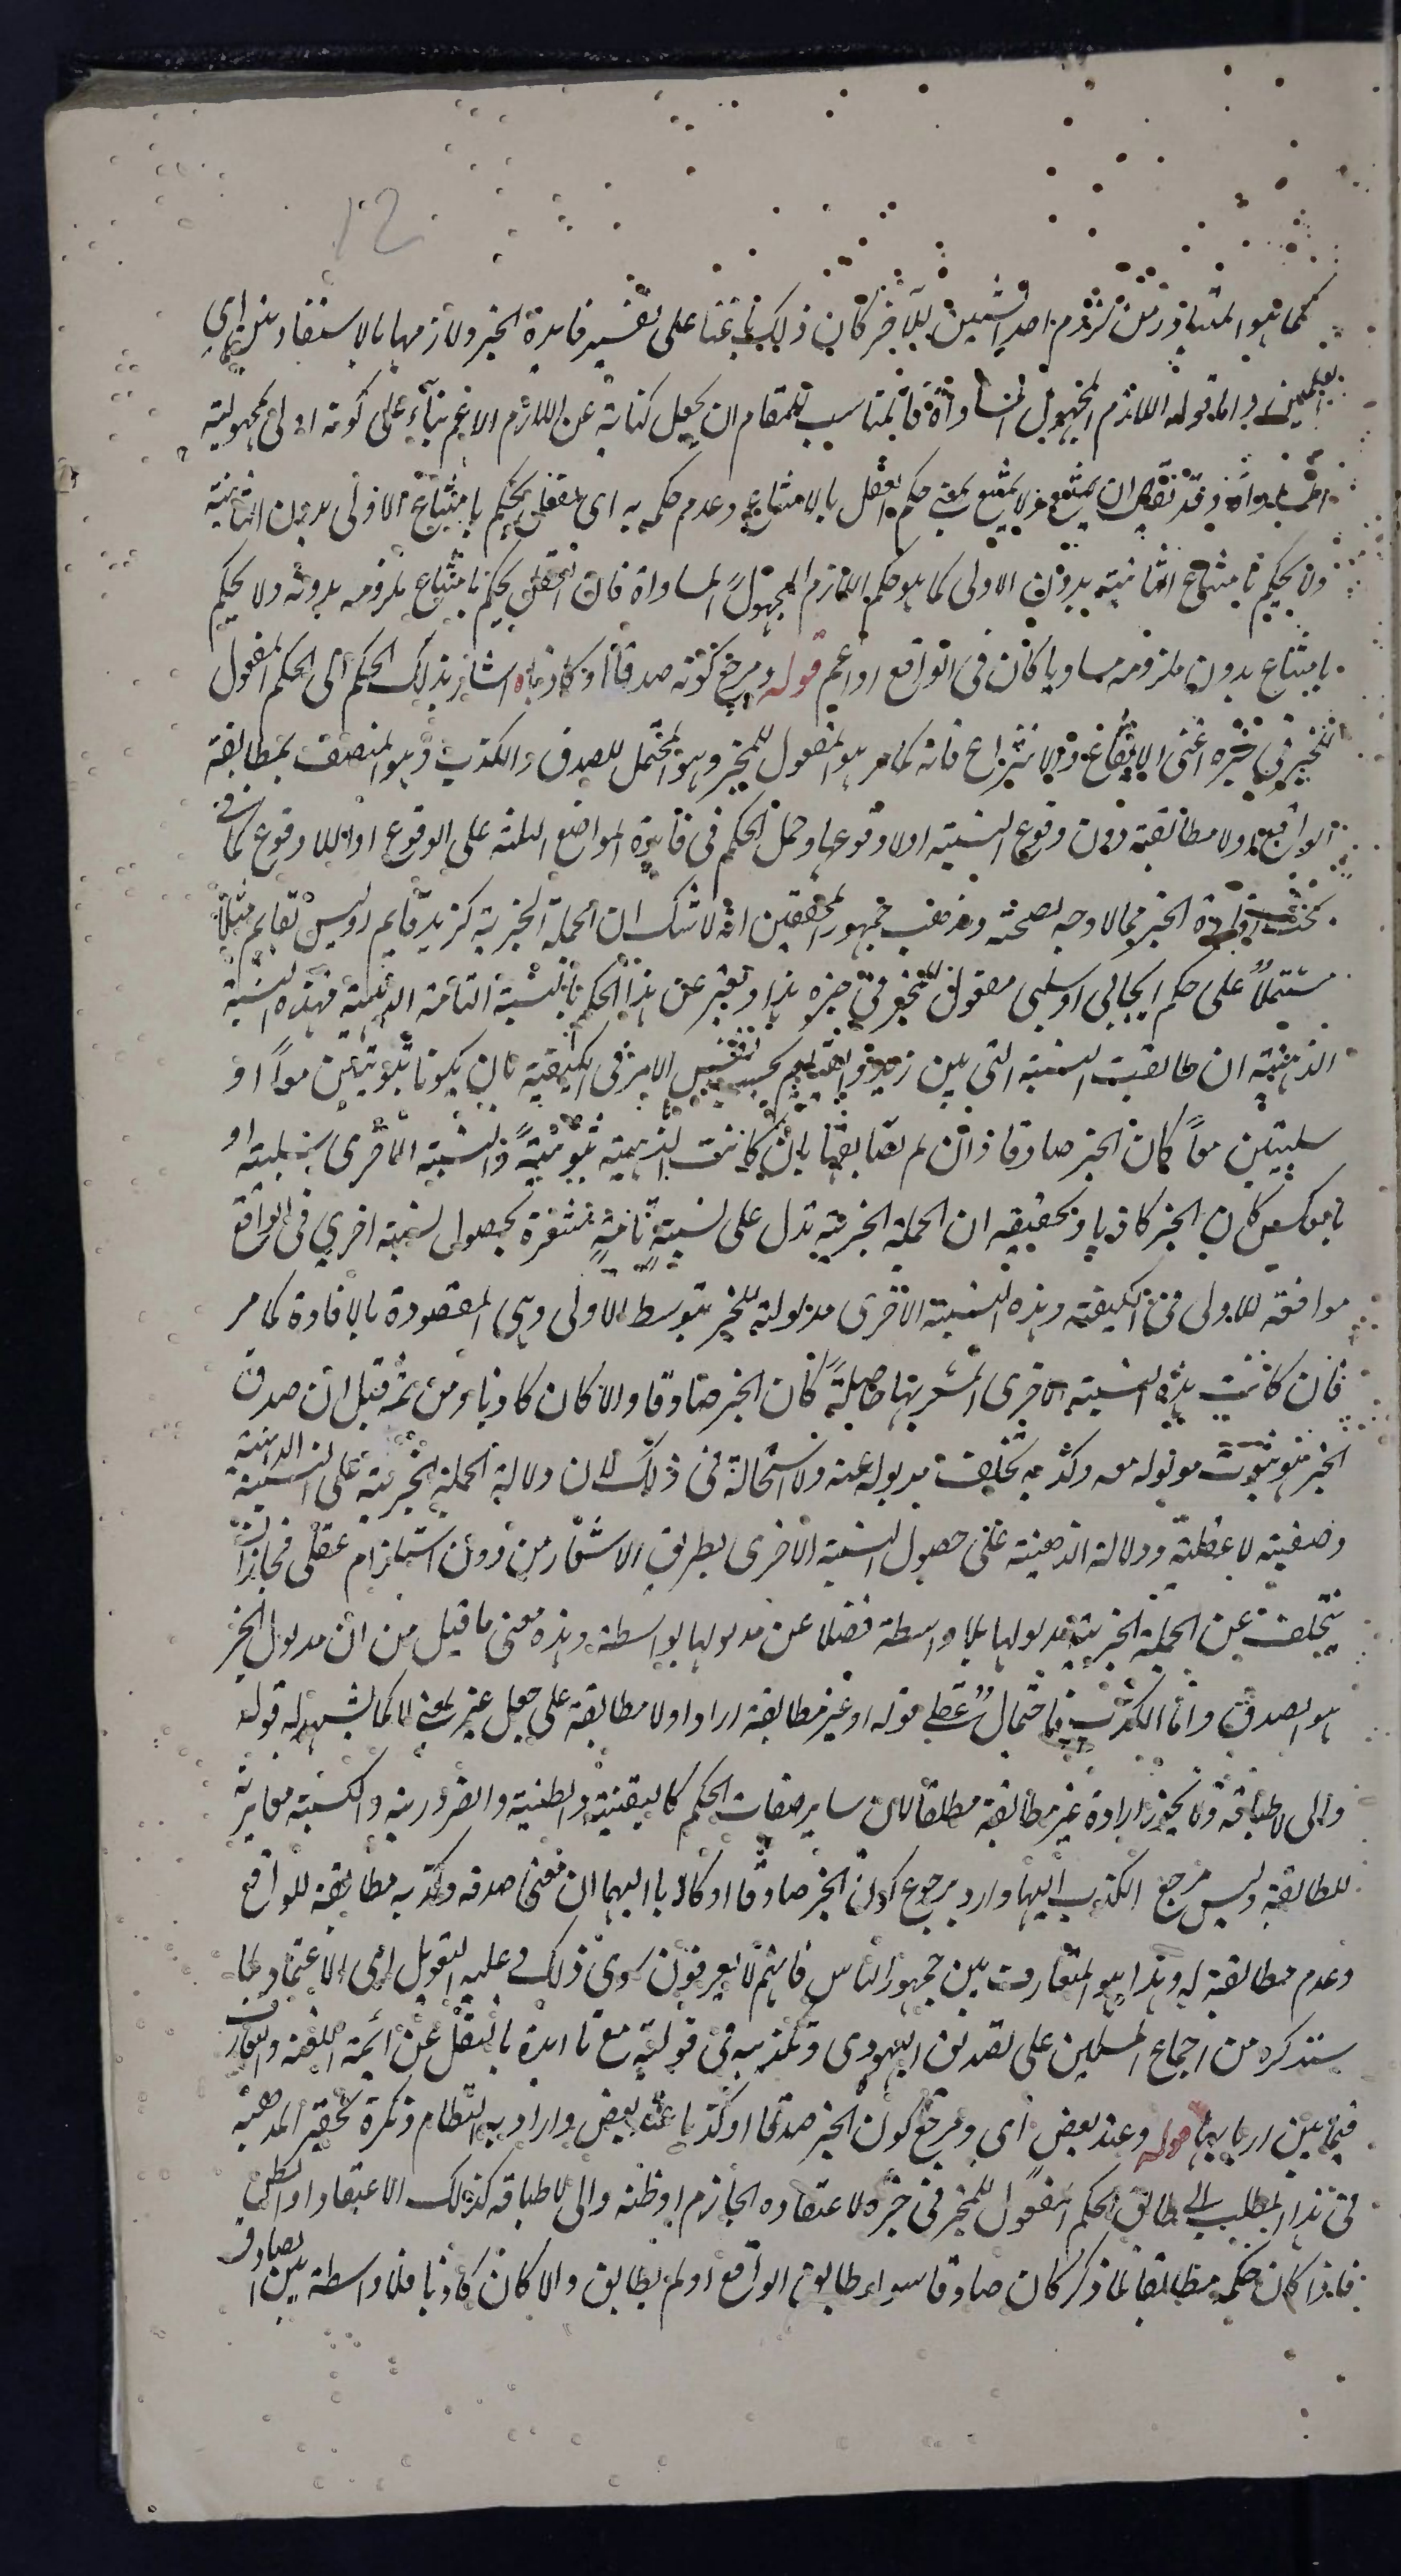 12
كما هو المتبادر من لزوم احد الشيئين للآخر كان ذلك باعثا على تفسير فايدة الخبر ولازمها بالاستفاد منهما اى
بعلمين واما قوله اللازم المجهول المساواة فالمناسب للمقام ان يجعل كناية عن اللازم الاعم بناء على كونه اولى بمجهولية
المساواة وقد يقال ان يمتنع ولا يمتنع بمعنى حكم العقل بالامتناع وعدم حكمه به اى العقل يحكم بامتناع الاولى بدون الثانية
ولا يحكم بامتناع الثانية بدون الاولى كما هو حكم اللازم المجهول المساواة فان العقل يحكم بامتناع ملزومه بدونه ولا يحكم
بامتناع بدون ملزومه مساويا كان فى الواقع او اعم قوله ومرجع كونه صدقا او كذبا اه اشار بذلك الحكم الى الحكم المفعول
للمخبر فى خبره اعنى الايقاع والانتزاع فانه كما مر هو المفعول للمخبر وهو المحتمل للصدق والكذب وهو المتصف بمطابقة
الواقع ولا مطابقته دون وقوع النسبة اولا وقوعها وحمل الحكم فى فايدة المواضع الثلثة على الوقوع او اللا وقوع كما فى
بحث افادة الخبر مما لا وجه لصحته ومذهب جمهور المحققين انه لا شك ان الجملة الخبرية كزيد قايم او ليس بقايم مثلا
مشتملا على حكم ايجابى او سلبى مفعول للمخبر فى خبره هذا ويعبر عن هذا الحكم بالنسبة التامة الذهنية فهذه النسبة
الذهنية ان طابقت النسبة التى بين زيد والقيام بحسب نفس الامر فى الكيفية بان يكونا ثبوتيتين معا او
سلبيتين معا كان الخبر صادقا وان لم تطابقها بان كانت الذهنية ثبوتية والنسبة الاخرى سلبية او
بالعكس كان الخبر كاذبا وتحقيقه ان الجملة الخبرية تدل على نسبة تامة مشعرة بحصول نسبة اخرى فى الواقع
موافقة للاولى فى الكيفية وهذه النسبة الاخرى مدلولة للخبر بتوسط الاولى وهى المقصودة بالافادة كما مر
فان كانت هذه النسبة الاخرى المشعر بها حاصلة كان الخبر صادقا والا كان كاذبا ومن ثمة قيل ان صدق
الخبر هو ثبوت مدلوله معه وكذبه تخلف مدلوله عنه ولا استحالة فى ذلك لان دلالة الجملة الخبرية على النسبة الذهنية
وضعية لا عقلية ودلالة الذهنية على حصول النسبة الاخرى بطريق الاشعار من دون استلزام عقلى فجاز ان
يتخلف عن الجملة الخبرية مدلولها بلا واسطة فضلا عن مدلولها بواسطة وهذه معنى ما قيل من ان مدلول الخبر
هو الصدق واما الكذب فاحتمال عقلى قوله او غير مطابقة اراد اولا مطابقة على جعل غير بمعنى لا كما يشهد له قوله
والى لا طباقه ولا يجوز ارادة غير مطابقة مطلقا لان ساير صفات الحكم كاليقينية والظنية والضرورية والكسبية مغايرة
للمطابقة وليس مرجع الكذب اليها واراد برجوع كون الخبر صادقا او كاذبا اليهما ان معنى صدقه وكذبه مطابقة للواقع
وعدم مطابقته له وهذا هو المتعارف بين جمهور الناس فانهم لا يعرفون سوى ذلك وعليه التعويل اى الاعتماد لما
سنذكره من اجماع المسلمين على تصديق اليهودى وتكذيبه فى قوليه مع تاايده بالنقل عن ائمة اللغة والتعارف
فيما بين اربابها قوله وعند بعض اى ومرجع كون الخبر صدقا او كذبا عند بعض واراد به النظام وذكره تحقير المذهبه
فى هذا المطلب الى طباق الحكم المفعول للمخبر فى خبره لاعتقاده الجازم او ظنه والى لا طباقه كذلك الاعتقاد او الظن
فاذا كان حكمه مطابقا لما ذكر كان صادقا سواء طابق الواقع او لم يطابق والا كان كاذبا فلا واسطة بين الصادق